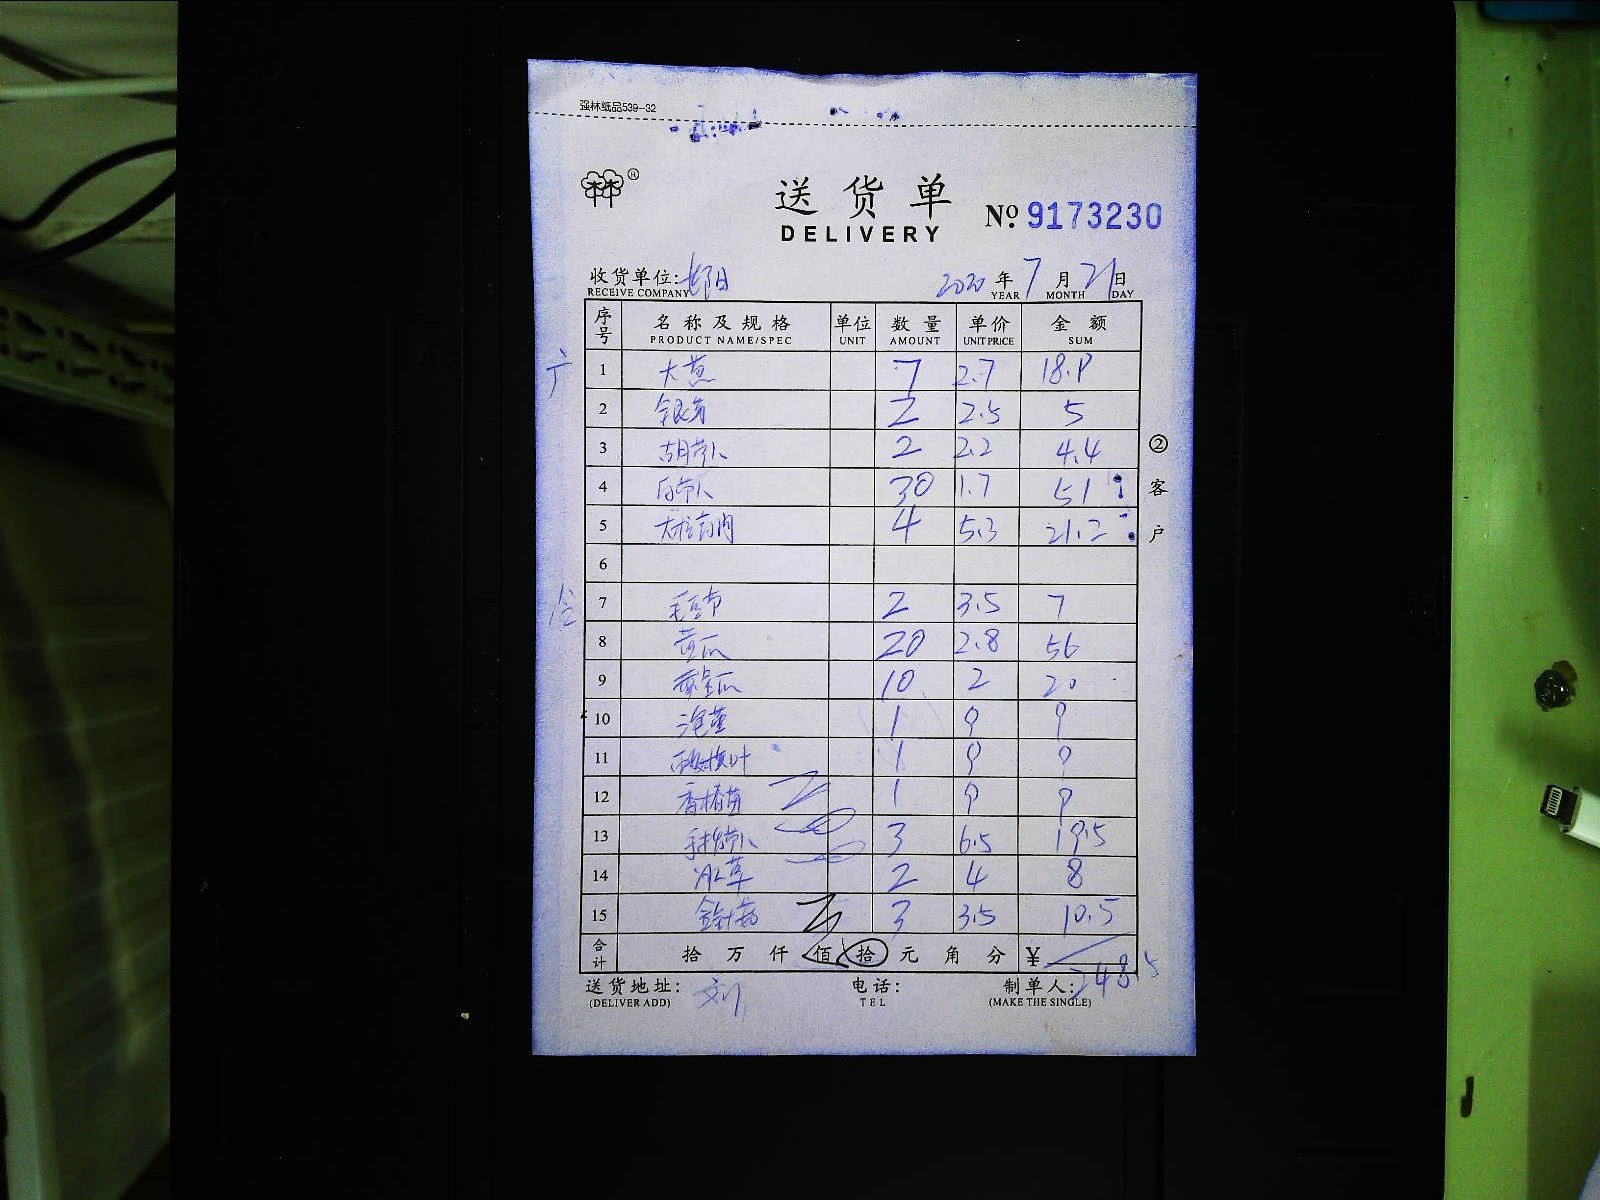 强林纸品539-32
林®
送货单
DELIVERY
No. 9173230
收货单位:
RECEIVE COMPANY
2020 年 7 月 21 日
YEAR MONTH DAY
序号 名称及规格 单位 数量 单价 金额
PRODUCT NAME/SPEC UNIT AMOUNT UNIT PRICE SUM
1 大葱 7 2.7 18.9
2 银芽 2 2.5 5
3 胡萝卜 2 2.2 4.4
4 白萝卜 30 1.7 51
5 4 5.3 21.2
6
7 毛豆节 2 3.5 7
8 黄瓜 20 2.8 56
9 黄皇瓜 10 2 20
10 1 9 9
11 1 9 9
12 香椿苗 1 9 9
13 3 6.5 19.5
14 冰草 2 4 8
15 金针菇 3 3.5 10.5
合计 拾 万 仟 佰 拾 元 角 分 ¥ 248.5
送货地址: 刘 电话: 制单人:
(DELIVER ADD) TEL (MAKE THE SINGLE)
②客户